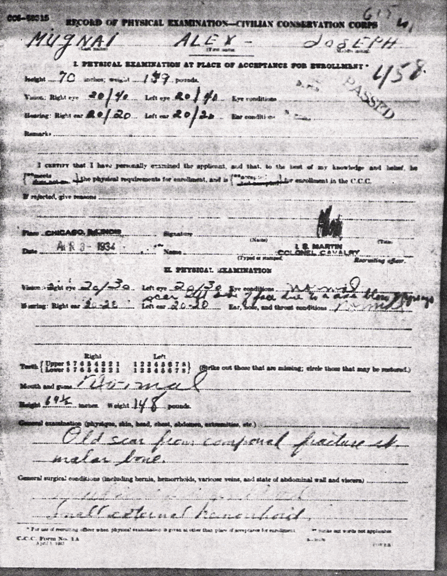 CCC-58015
RECORD OF PHYSICAL EXAMINATION—CIVILIAN CONSERVATION CORPS
MUGNAI ALEX - JOSEPH
I. PHYSICAL EXAMINATION AT PLACE OF ACCEPTANCE FOR ENROLLMENT *
458
PASSED
Height 70 inches; weight pounds.
Vision: Right eye 20/40 Left eye 20/40 Eye conditions
Hearing: Right ear 20/20 Left ear 20/20 Ear conditions
Remarks:
I CERTIFY that I have personally examined the applicant, and that, to the best of my knowledge and belief, he
the physical requirements for enrollment, and is for enrollment in the C.C.C.
If rejected, give reasons
Place CHICAGO, ILLINOIS Signature
(Name) (Title)
Date 3 - 1934 Name I. S. MARTIN
COLONEL CAVALRY
(Typed or stamped) Recruiting officer.
II. PHYSICAL EXAMINATION
Vision: Right eye 20/30 Left eye 20/30 Eye conditions Normal
scar left side of face due to
Hearing: Right ear 20-20 Left ear 20-20 Ear, nose, and throat conditions Normal
Right Left
Teeth Upper 8 7 6 5 4 3 2 1 1 2 3 4 5 6 7 8
8 7 6 5 4 3 2 1 1 2 3 4 5 6 7 8 (Strike out those that are missing; circle those that may be restored.)
Mouth and gums Normal
Height 69½ inches Weight 148 pounds.
General examination (physique, skin, head, chest, abdomen, extremities, etc.)
Old scar from fracture
malar bone.
General surgical conditions (including hernia, hemorrhoids, varicose veins, and state of abdominal wall and viscera)
Small external hemorrhoid.
* For use of recruiting officer when physical examination is given at other than place of acceptance for enrollment. ** Strike out words not applicable.
C.C.C. Form No. 1A